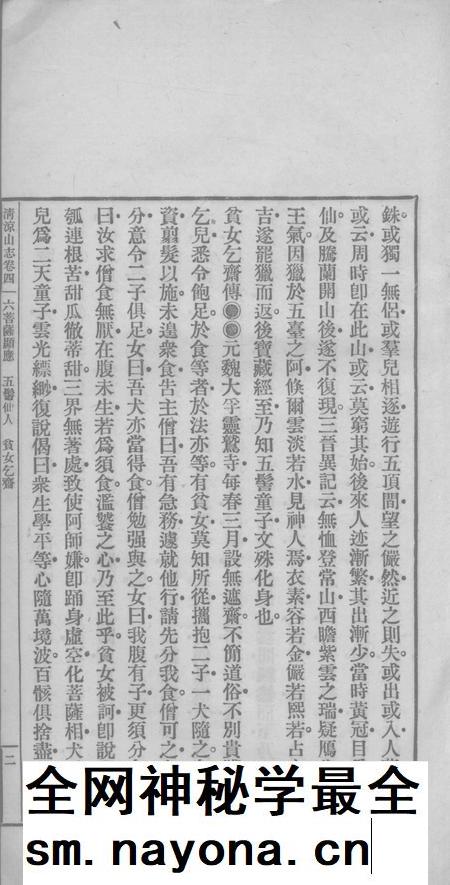 銖或獨一無侶或羣兒相逐遊行五頂間望之儼然近之則失或出或入人
或云周時卽在此山或云莫窮其始後來人迹漸繁其出漸少當時黃冠目
仙及騰蘭開山後遂不復現三晉異記云無恤登常山西瞻紫雲之瑞疑
王氣因獵於五臺之阿倏爾雲淡若水見神人焉衣素容若金儼若熙若占
吉遂罷獵而返後寶藏經至乃知五髻童子文殊化身也
貧女乞齋傳 元魏大孚靈鷲寺每春三月設無遮齋不簡道俗不別貴
乞兒悉令飽足於食等者於法亦等有貧女莫知所從攜抱二子一犬隨之
資翦髮以施未遑衆食告主僧曰吾有急務遽就他行請先分我食僧可之
分意令二子俱足女曰吾犬亦當得食僧勉强與之女曰我腹有子更須分
曰汝求僧食無厭在腹未生若爲須食濫饕之心乃至此乎貧女被訶卽說
瓠連根苦甜瓜徹蒂甜三界無著處致使阿師嫌卽踊身虛空化菩薩相犬
兒爲二天童子雲光縹緲復說偈曰衆生學平等心隨萬境波百骸俱捨盡
清涼山志卷四 六菩薩顯應 五髻仙人 貧女乞齋 二
全网神秘学最全
sm.nayona.cn